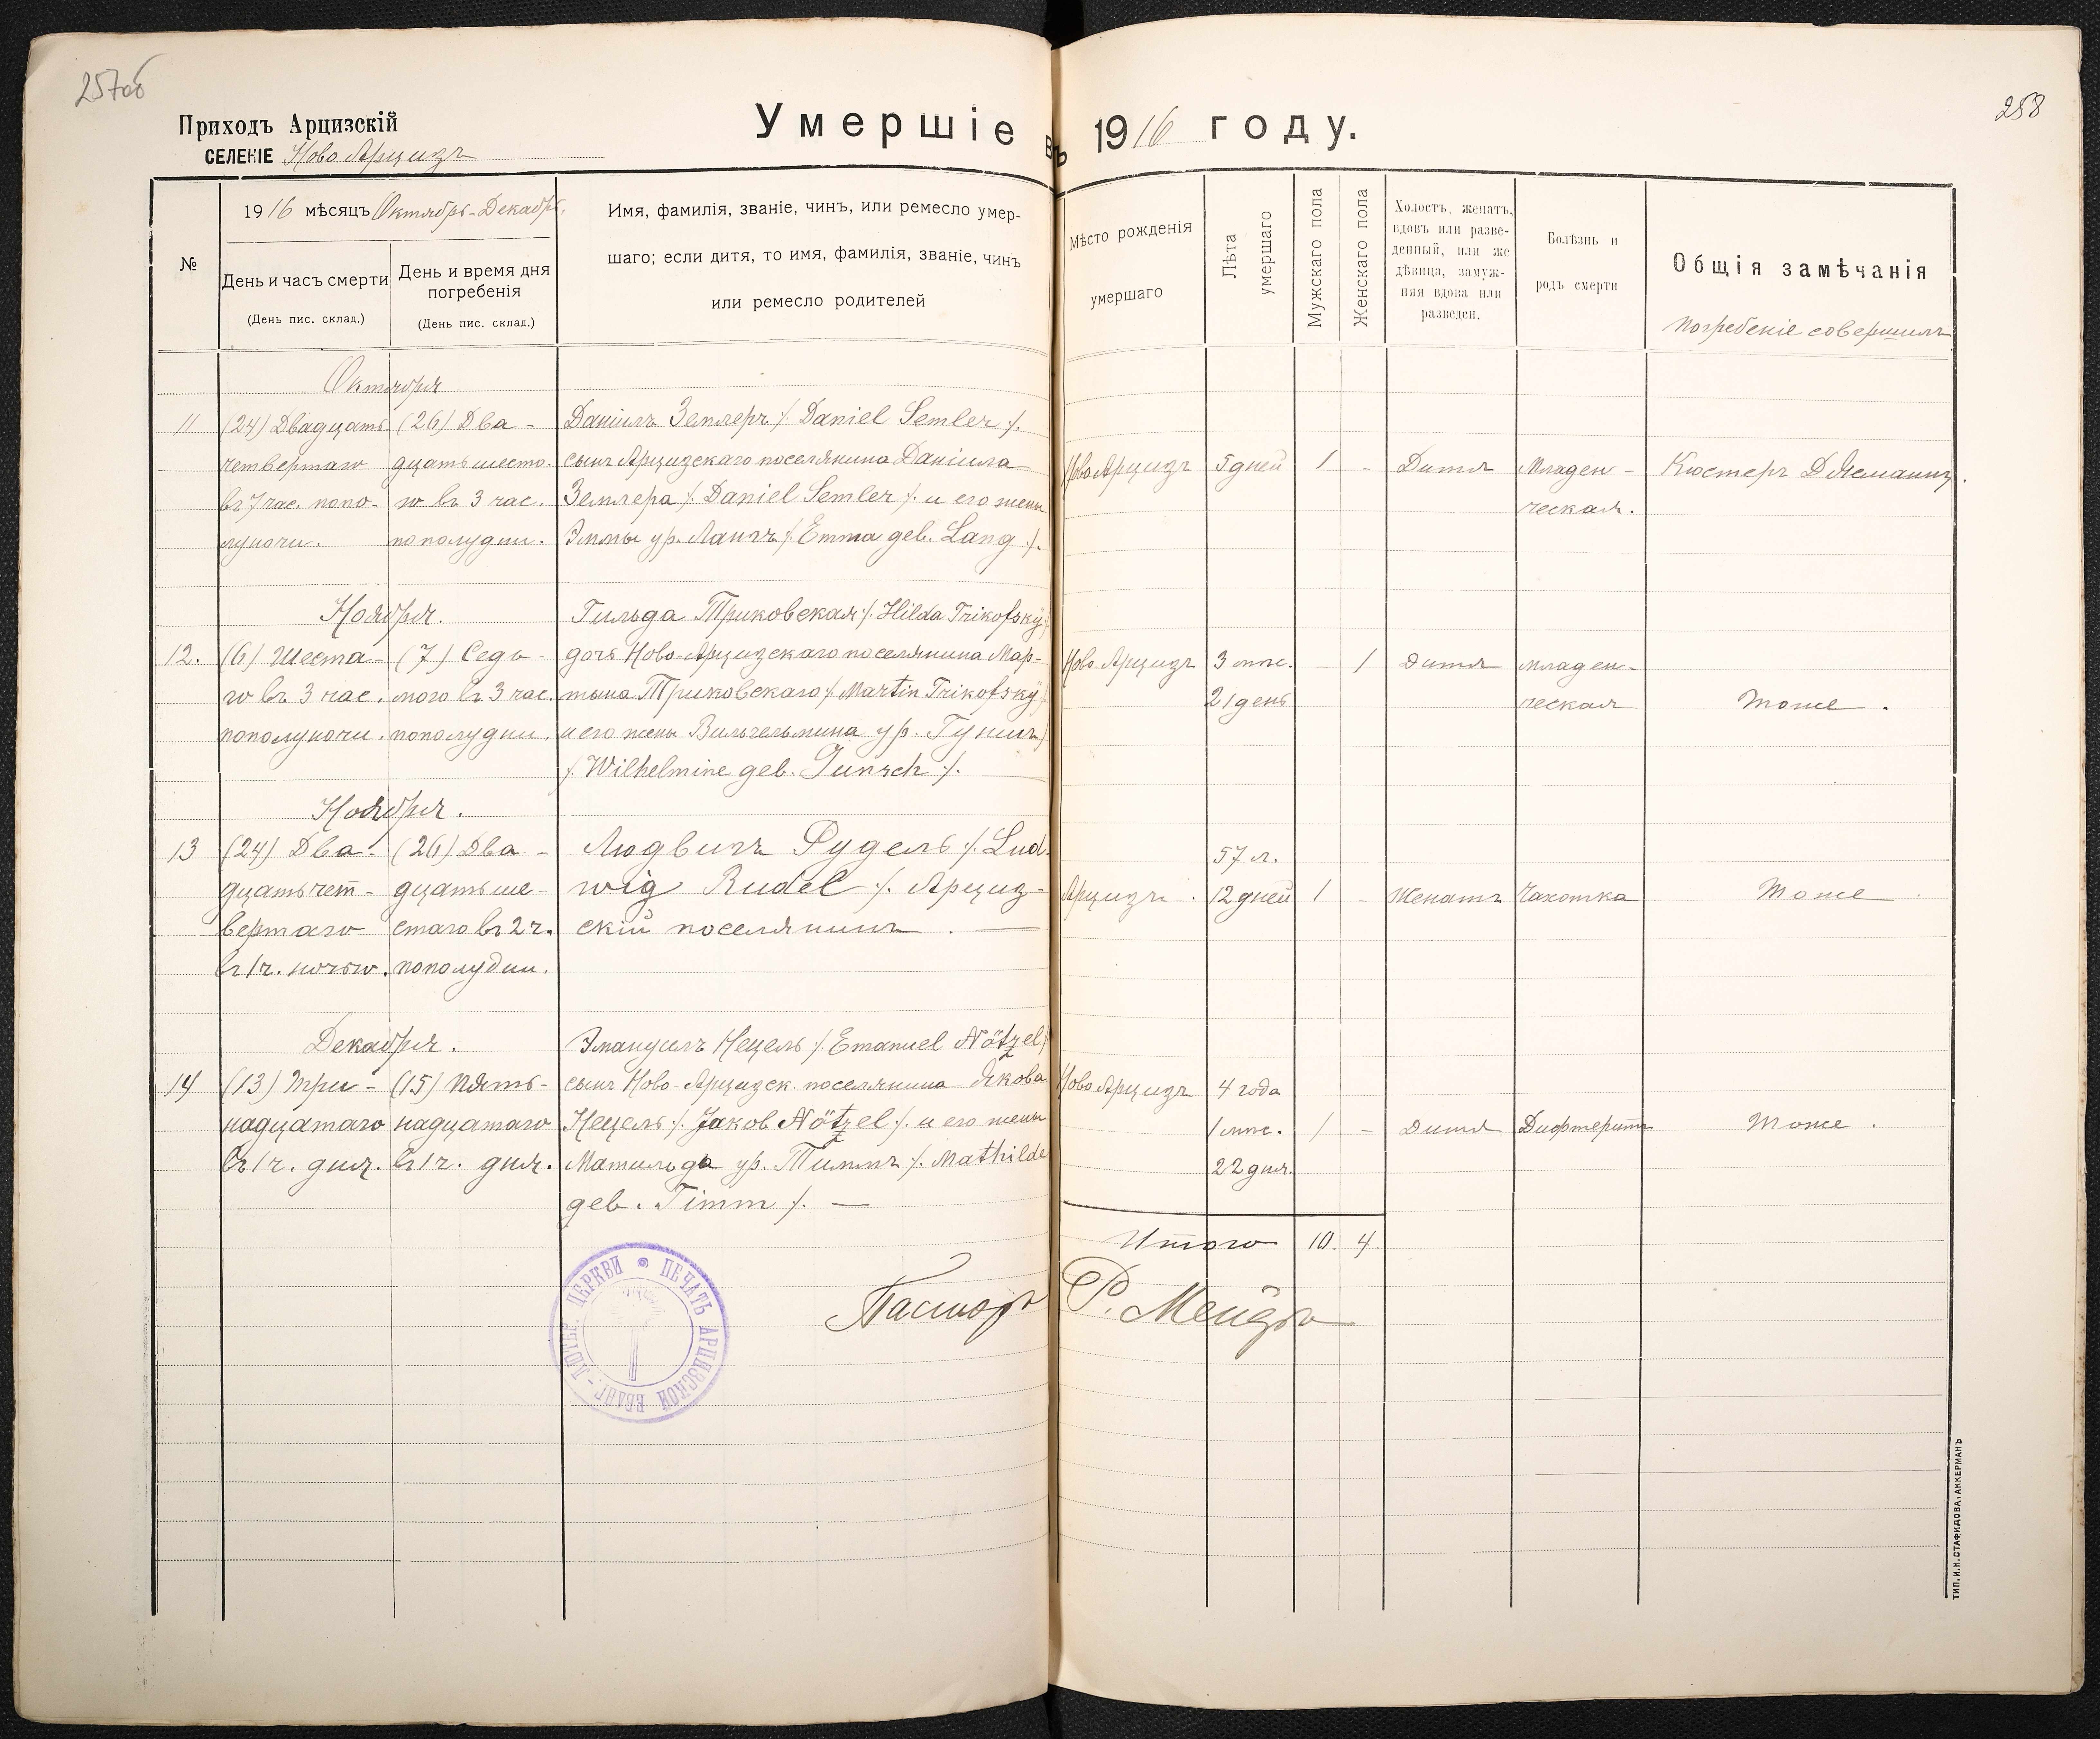 257об
258
Приходъ Арцизскій
СЕЛЕНІЕ Ново Арцизъ
Умершіе въ 1916 году.
№
1916 мѣсяцъ Октябрь-Декабрь.
День и часъ смерти
(День пис. склад.)
День и время дня
погребенія
(День пис. склад.)
Имя, фамилія, званіе, чинъ, или ремесло умер-
шаго; если дитя, то имя, фамилія, званіе, чинъ
или ремесло родителей
Мѣсто рожденія
умершаго
Лѣта
умершаго
Мужскаго пола
Женскаго пола
Холостъ, женатъ,
вдовъ или разве-
денный, или же
дѣвица, замуж-
няя вдова или
разведен.
Болѣзнь и
родъ смерти
Общія замѣчанія
погребеніе совершилъ
Октября
11
(24) Двадцать
четвертаго
въ 7 час. попо-
луночи.
(26) Два-
дцать шесто-
го въ 3 час.
пополудни.
Даніилъ Землеръ /. Daniel Semler /.
сынъ Арцизскаго поселянина Даніила
Землера /. Daniel Semler /. и его жены
Эммы ур. Лангъ /. Emma geb. Lang /.
Ново Арцизъ
5 дней
1
-
Дитя
Младен-
ческая.
Кюстеръ
Ноября.
12.
(6) Шеста-
го въ 3 час.
пополуночи.
(7) Седь-
мого въ 3 час.
пополудни.
Гильда Триковская /. Hilda Trikofsky /.
дочь Ново-Арцизскаго поселянина Мар-
тына Триковскаго /. Martin Trikofsky /.
и его жены Вильгельмина ур. Гуншъ
/. Wilhelmine geb. Gunsch /.
Ново Арцизъ
3 мѣс.
21 день
-
1
Дитя
младен-
ческая
Тоже.
Ноября.
13
(24) Два-
дцать чет-
вертаго
въ 1 ч. ночью.
(26) Два-
дцать ше-
стаго въ 2 ч.
пополудни.
Людвигъ Рудель /. Lud-
wig Rudel /. Арциз-
скій поселянинъ. —
Арцизъ.
57 л.
12 дней
1
-
Женатъ
Чахотка
Тоже
Декабря.
14
(13) Три-
надцатаго
въ 1 ч. дня.
(15) Пять-
надцатаго
въ 1 ч. дня.
Эмануилъ Нецель /. Emanuel Nötzel /
сынъ Ново-Арцизск. поселянина Якова
Нецель /. Jakob Nötzel /. и его жены
Матильда ур. Тиммъ /. Mathilde
geb. Timm /. —
Ново Арцизъ
4 года
1 мѣс.
22 дня.
1
-
Дитя
Дифтеритъ
Тоже.
Итого 10. 4.
ПЕЧАТЬ АРЦИЗСКОЙ ЕВАНГ.-ЛЮТЕР. ЦЕРКВИ
Пасторъ Р. Мейеръ
ТИП. И.Н.СТАФИДОВА, АККЕРМАНЪ